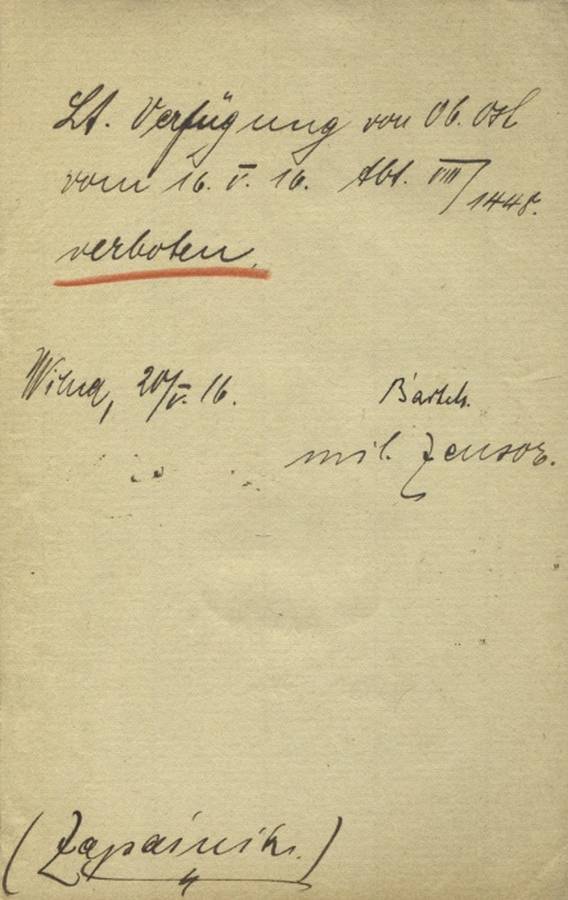 Lt. Verfügung von Ob. Ost
vom 16. V. 16. Abt. VIII/1448.
verboten.
Wilna, 20/V. 16.
Bartels.
mil. Zensor.
(Zapainik.)